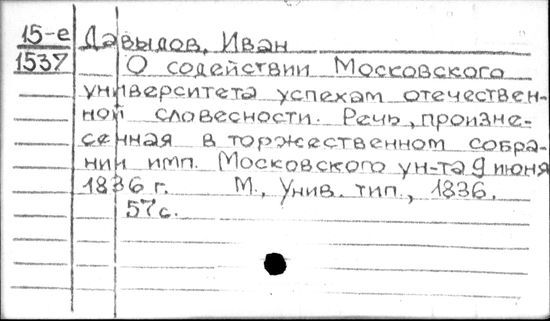 15-е Давыдов, Иван
1537 О содействии Московского
университета успехам отечествен-
ной словесности. Речь, произне-
сенная в торжественном собра-
нии имп. Московского ун-та 9 июня
1836 г. М., Унив. тип., 1836.
57 с.